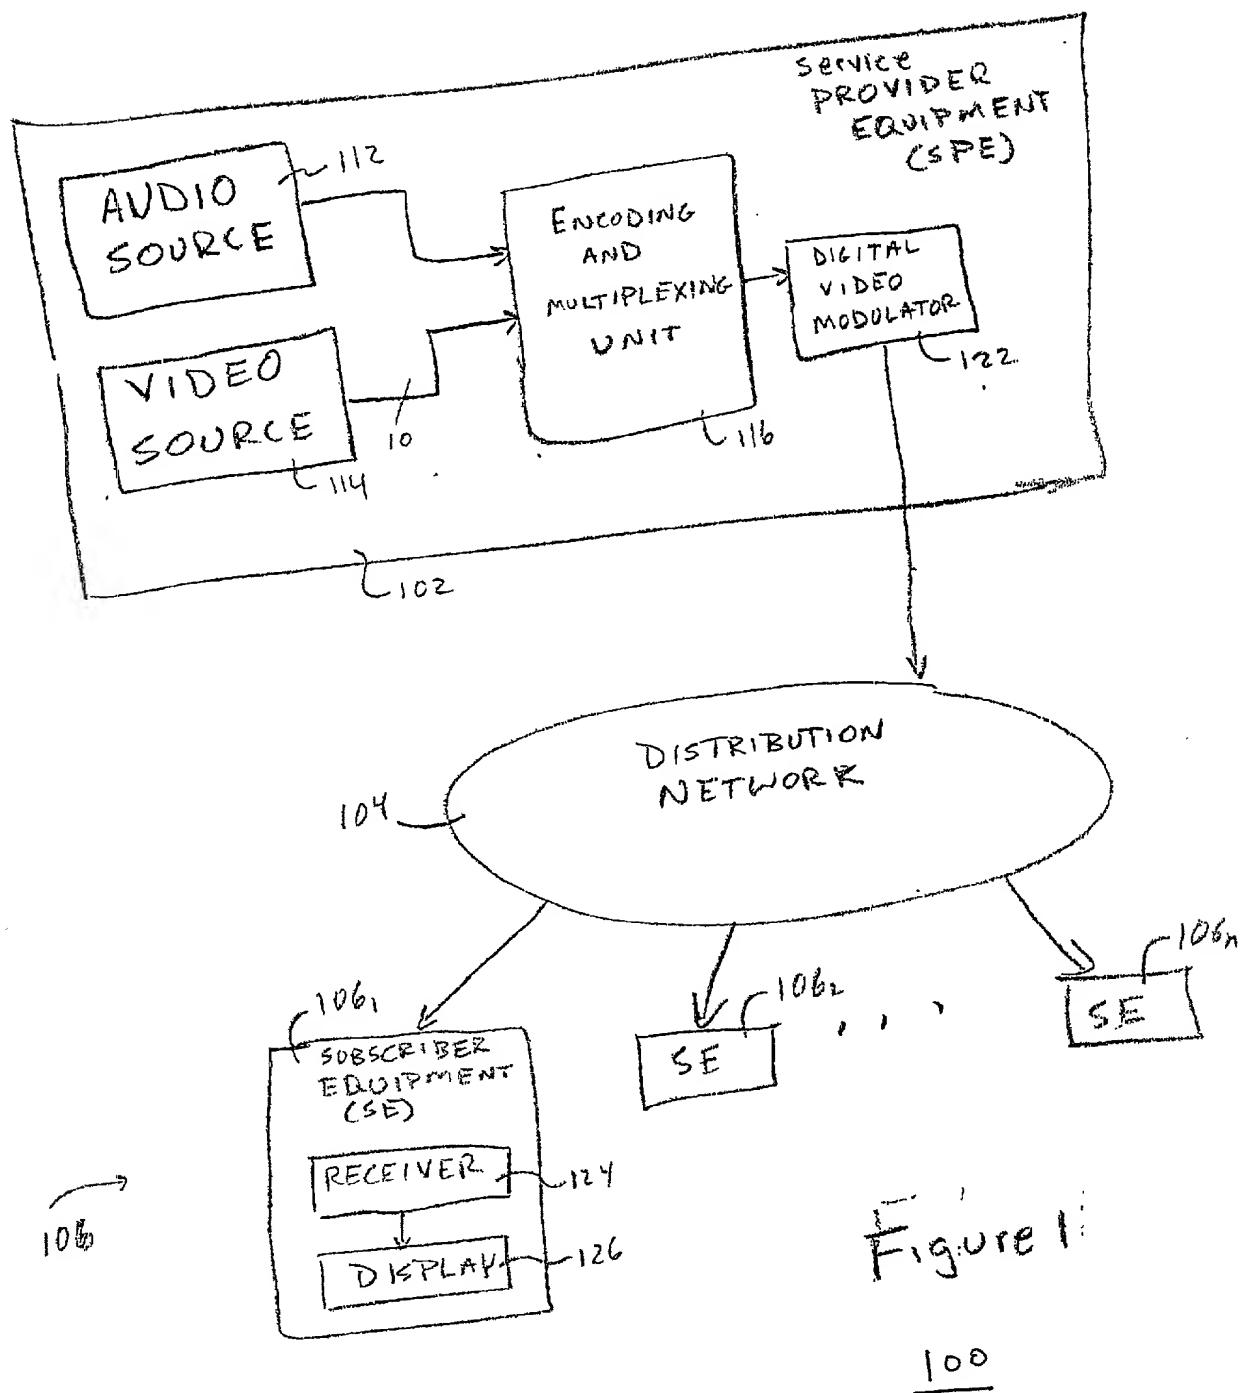 Service
PROVIDER
EQUIPMENT
(SPE)
112
AUDIO
SOURCE
ENCODING
AND
MULTIPLEXING
UNIT
DIGITAL
VIDEO
MODULATOR
122
VIDEO
SOURCE
10
116
114
102
DISTRIBUTION
NETWORK
104
106₁
SUBSCRIBER
EQUIPMENT
(SE)
106₂
SE
106ₙ
SE
RECEIVER
124
DISPLAY
126
106
Figure 1
100